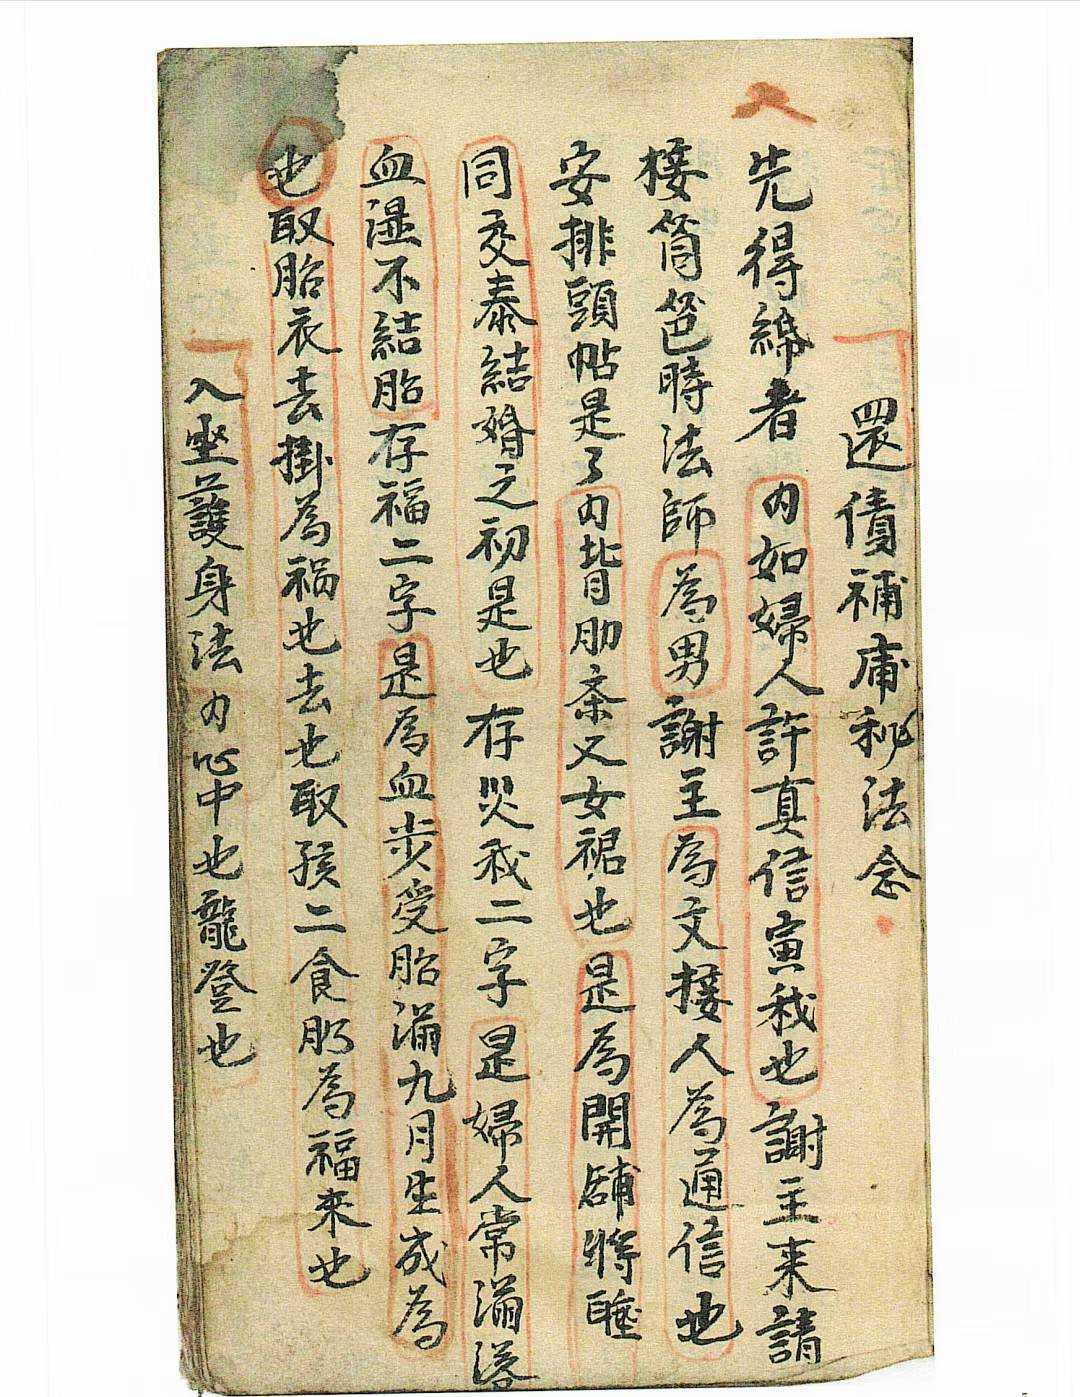 還債補庙秘法念
先得綿者内如婦人許真信寅我也謝主来請
接筒筶時法師為男謝主為文接人為通信也
安排頭帖是了内皆肋条又女裙也是為開舖將睡
同交泰結婚之初是也存災我二字是婦人常漏落
血湿不結胎存福二字是為血步受胎漏九月生成為
也取胎衣去掛為禍也去也取孩二食肠為福来也
入坐護身法内心中也龍登也